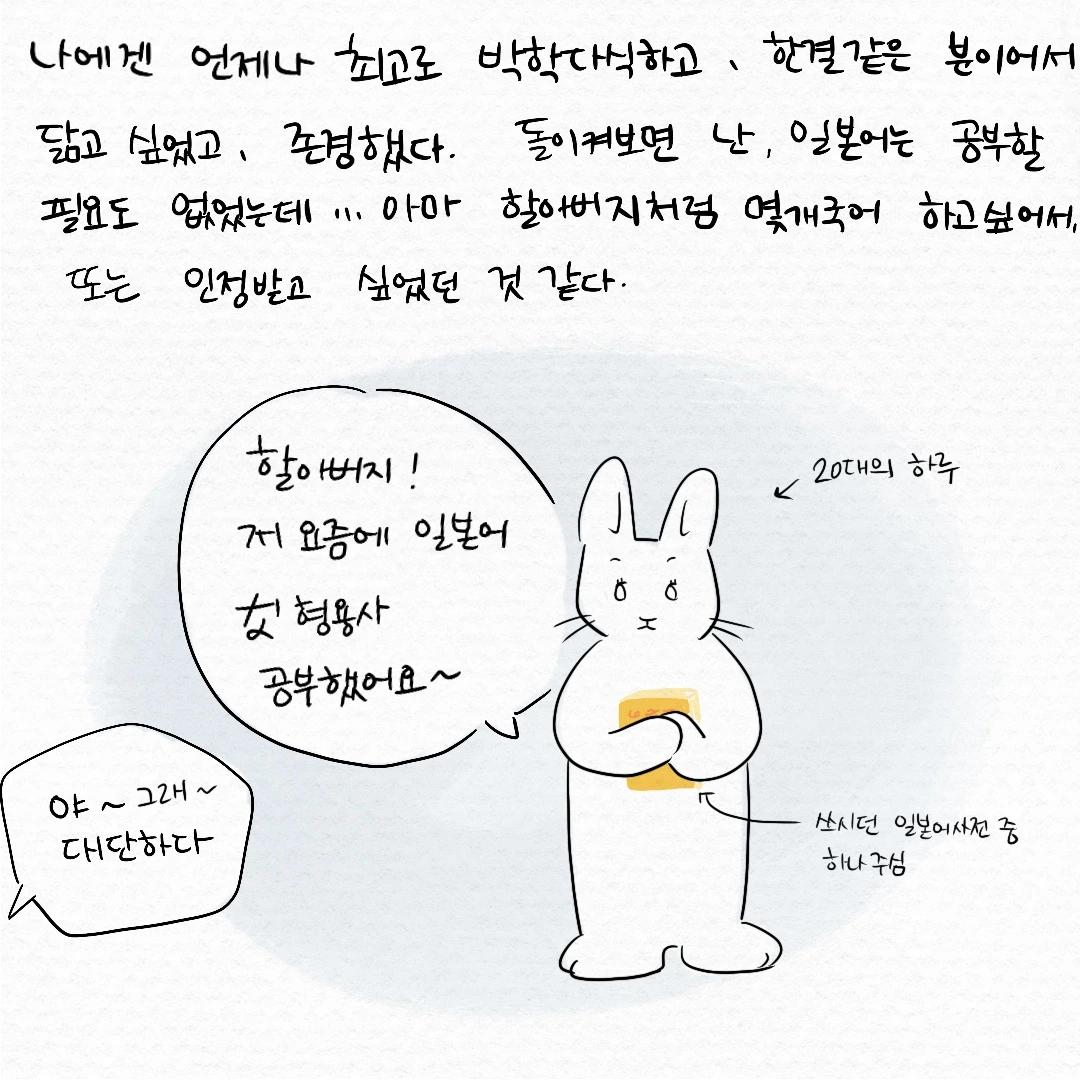 나에겐 언제나 최고로 박학다식하고, 한결같은 분이어서
닮고 싶었고, 존경했다. 돌이켜보면 난, 일본어는 공부할
필요도 없었는데... 아마 할아버지처럼 몇개국어 하고싶어서,
또는 인정받고 싶었던 것 같다.
할아버지!
저 요즘에 일본어
첫 형용사
공부했어요~
20대의 하루
야~ 그래~
대단하다
쓰시던 일본어사전 중
하나 주심